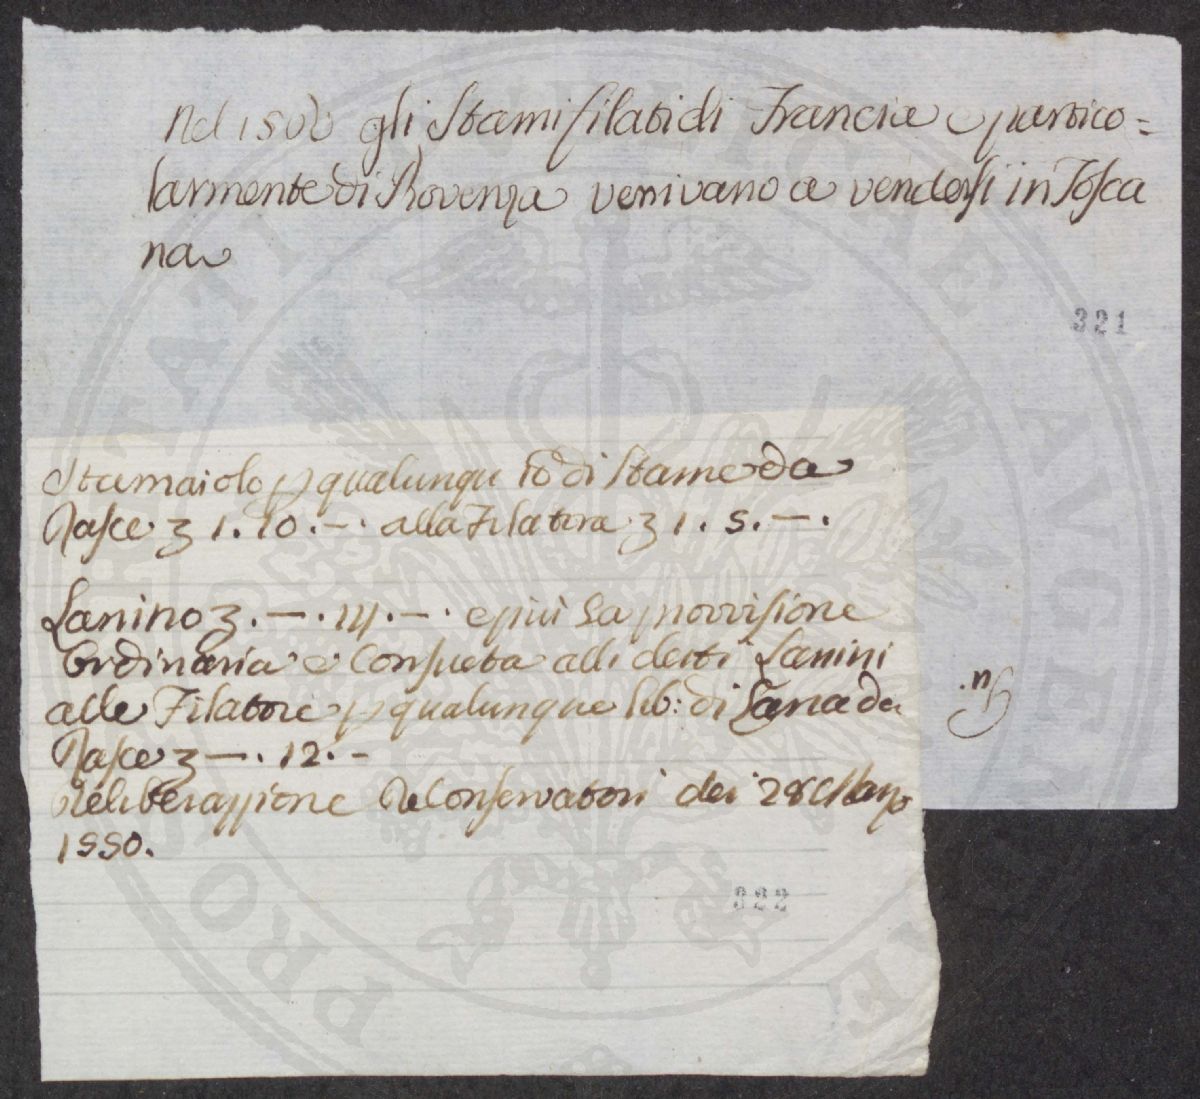 Nel 150 gli Stami filati di Francia e partico=
larmente di Provenza venivano a vendersi in Tosca
na
321
Stamaiolo p qualunque di Stame da
Rasce 1. 10. —. alla Filatora 1. 5. —.
Lanino . —. 14. —. e più la provvisione
Ordinaria e Consueta alli detti Lanini
alle Filatore p qualunque lib: di Lana da
Rasce —. 12. —
Deliberazzione de Conservatori dei 28 Marzo
1550.
322
PROSPERITATI PVBLICAE AVGENDAE